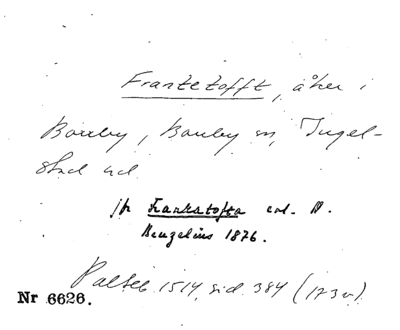 Frantetofft, åker i
Bouby, Bouby sn, Ingel-
stad hd
jfr Frankatofta enl. N.
Benzelius 1876.
Palteb 1514, sid. 384 (173v)
Nr 6626.